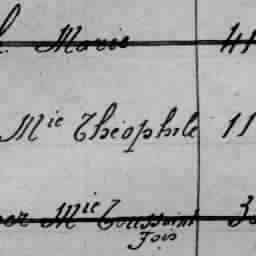 Marie 41
Mie Théophile 11
Mie Toussaint 3
Jois